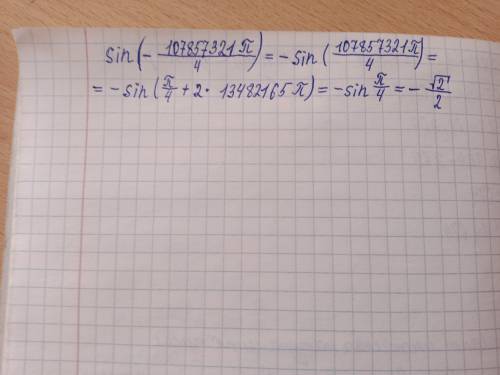 sin(-107857321π/4) = -sin(107857321π/4) =
= -sin(π/4 + 2· 13482165 π) = -sin π/4 = -√2/2